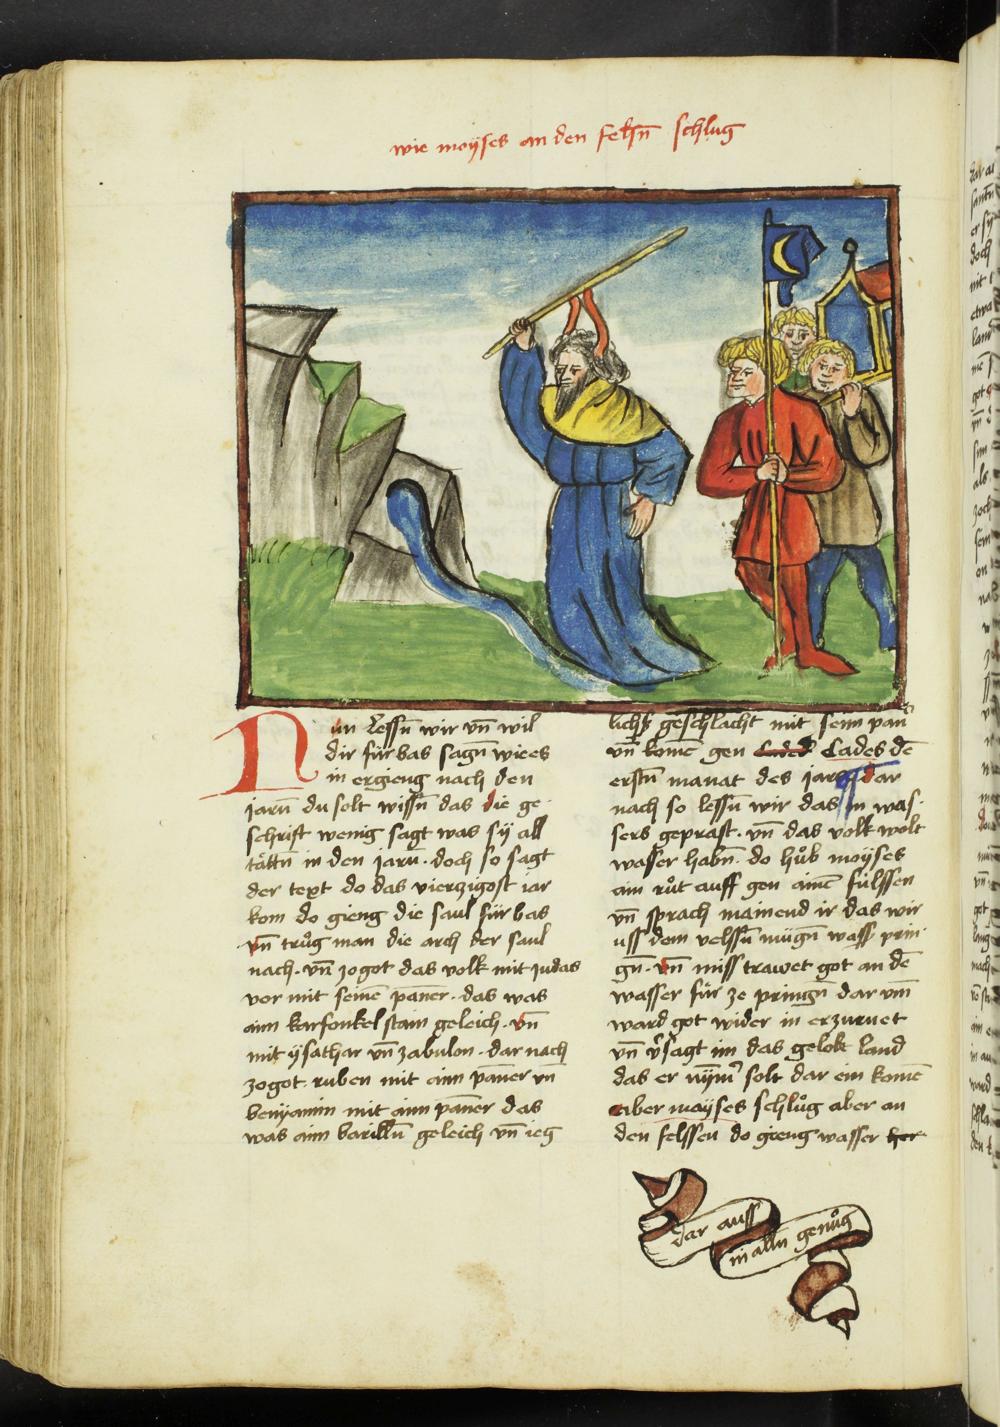 wie moÿses an den felsn̄ schlug
Nun lessn̄ wir vn̄ wil
dir fürbas sagn wie es
in ergieng nach den
jarn̄ du solt wissn̄ das die ge
schrift wenig sagt was sÿ all
tättn̄ in den jarn̄ · doch so sagt
der text do das vierzigost iar
kom do gieng die saul für bas
vn̄ trůg man die arch der saul
nach · vn̄ zogot das volk mit judas
vor mit seinē paner · das was
ainn karfonkel stain geleich · vn̄
mit ÿsathar vn̄ zabulon · dar nach
zogot ruben mit ainn pāner vn̄
benyamin mit ainn pāner das
was ainn barilln̄ geleich vn̄ ieg
geschlächt mit seim pan
vn̄ komē gen Cades dē
erstn̄ manat des jars dar
nach so lessn̄ wir das in was·
sers geprast · vn̄ das volk wolt
wasser habn̄ · do hůb moÿses
ain růt auff gen ainē fülssen
vn̄ sprach mainend ir das wir
uss dem velssn̄ mügn̄ wass prin·
gn̄ · vn̄ miss trawet got an dē
wasser für ze pringn̄ dar vm̄
ward got wider in erzurnet
vn̄ v̾sagt im das gelobt land
das er solt dar ein komē
aber moÿses schlůg aber an
den felssen do gieng wasser her
dar auss
in alln̄ genůg